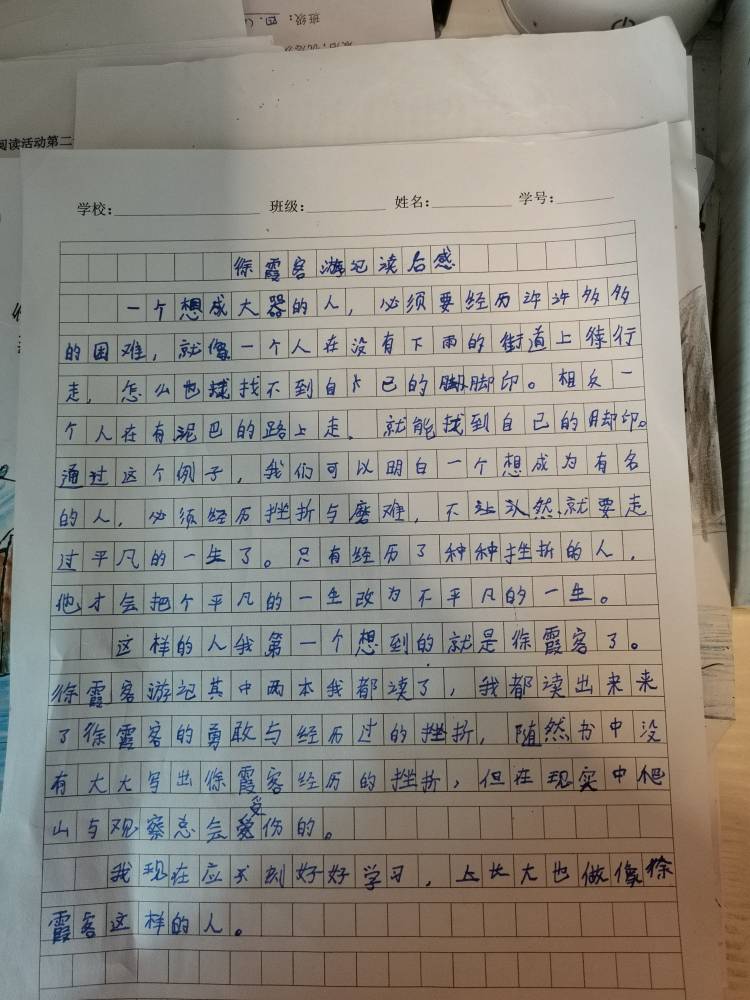 班级：四.(
阅读活动第二
学校： 班级： 姓名： 学号：
徐霞客游记读后感
一个想成大器的人，必须要经历许许多多
的困难，就像一个人在没有下雨的街道上徐行
走，怎么也找不到自己的脚印。相反一
个人在有泥巴的路上走，就能找到自己的脚印。
通过这个例子，我们可以明白一个想成为有名
的人，必须经历挫折与磨难，不让认然就要走
过平凡的一生了。只有经历了种种挫折的人，
他才会把个平凡的一生改为不平凡的一生。
这样的人我第一个想到的就是徐霞客了。
徐霞客游记其中两本我都读了，我都读出来来
了徐霞客的勇敢与经历过的挫折，随然书中没
有大大写出徐霞客经历的挫折，但在现实中爬
山与观察总会受伤的。
我现在应刻好好学习，上长大也做像徐
霞客这样的人。